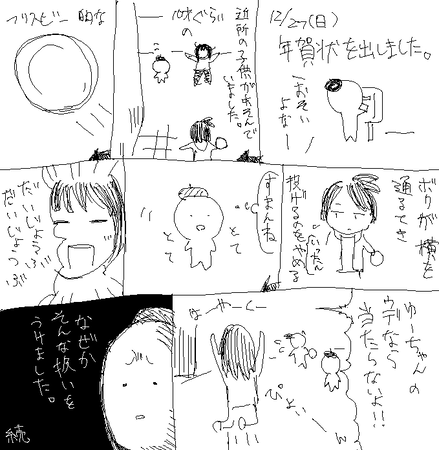 12/27(日)
年賀状を出しました。
(おそい
よなー)
近所の子供があそんで
いました。
10才ぐらい
の
フリスビー的な
ボクが横を
通るとき
いったん
投げるのをやめる
すまんね
とて
とて
だいじょうぶ
だいじょうぶ
ゆーちゃんの
ウデなら
当たらないよ!!
はーやーくー
ぴょい
なぜか
そんな扱いを
うけました。
続